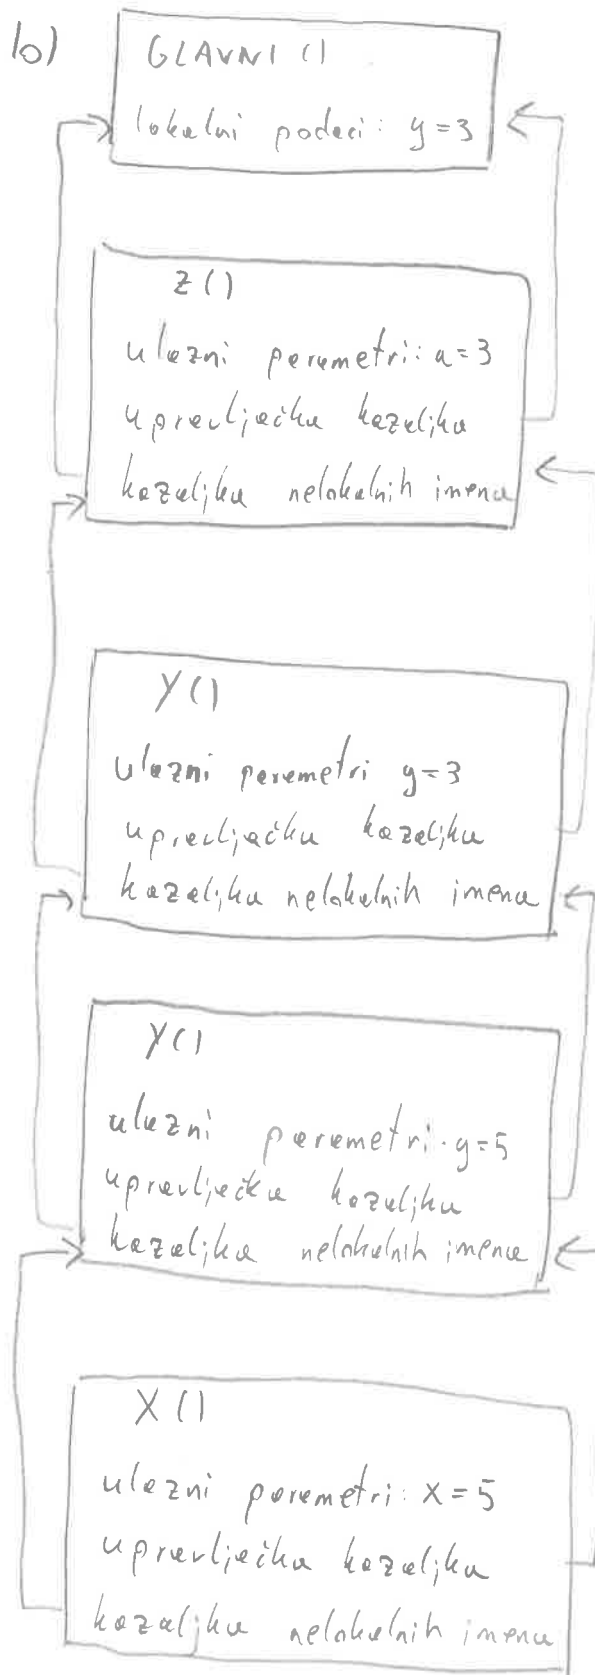 b)
GLAVNI ()
lokalni podaci: y=3
Z ()
ulazni parametri: a=3
upravljačka kazaljka
kazaljka nelokalnih imena
Y ()
ulazni parametri y=3
upravljačka kazaljka
kazaljka nelokalnih imena
Y ()
ulazni parametri: y=5
upravljačka kazaljka
kazaljka nelokalnih imena
X ()
ulazni parametri: x=5
upravljačka kazaljka
kazaljka nelokalnih imena